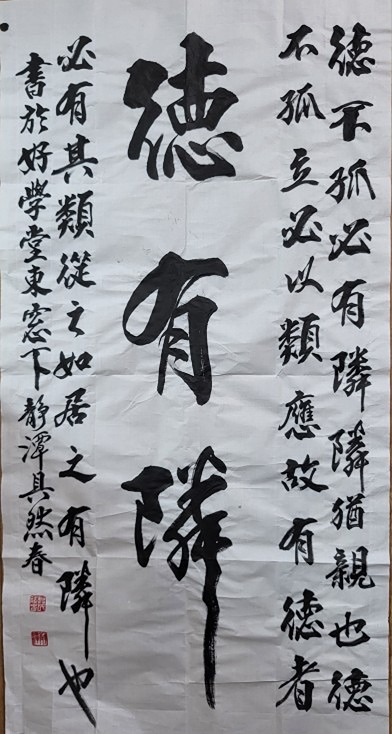 德不孤必有隣隣猶親也德
不孤立必以類應故有德者
德有隣
必有其類從之如居之有隣也
書於好學堂東窓下靜潭具然春